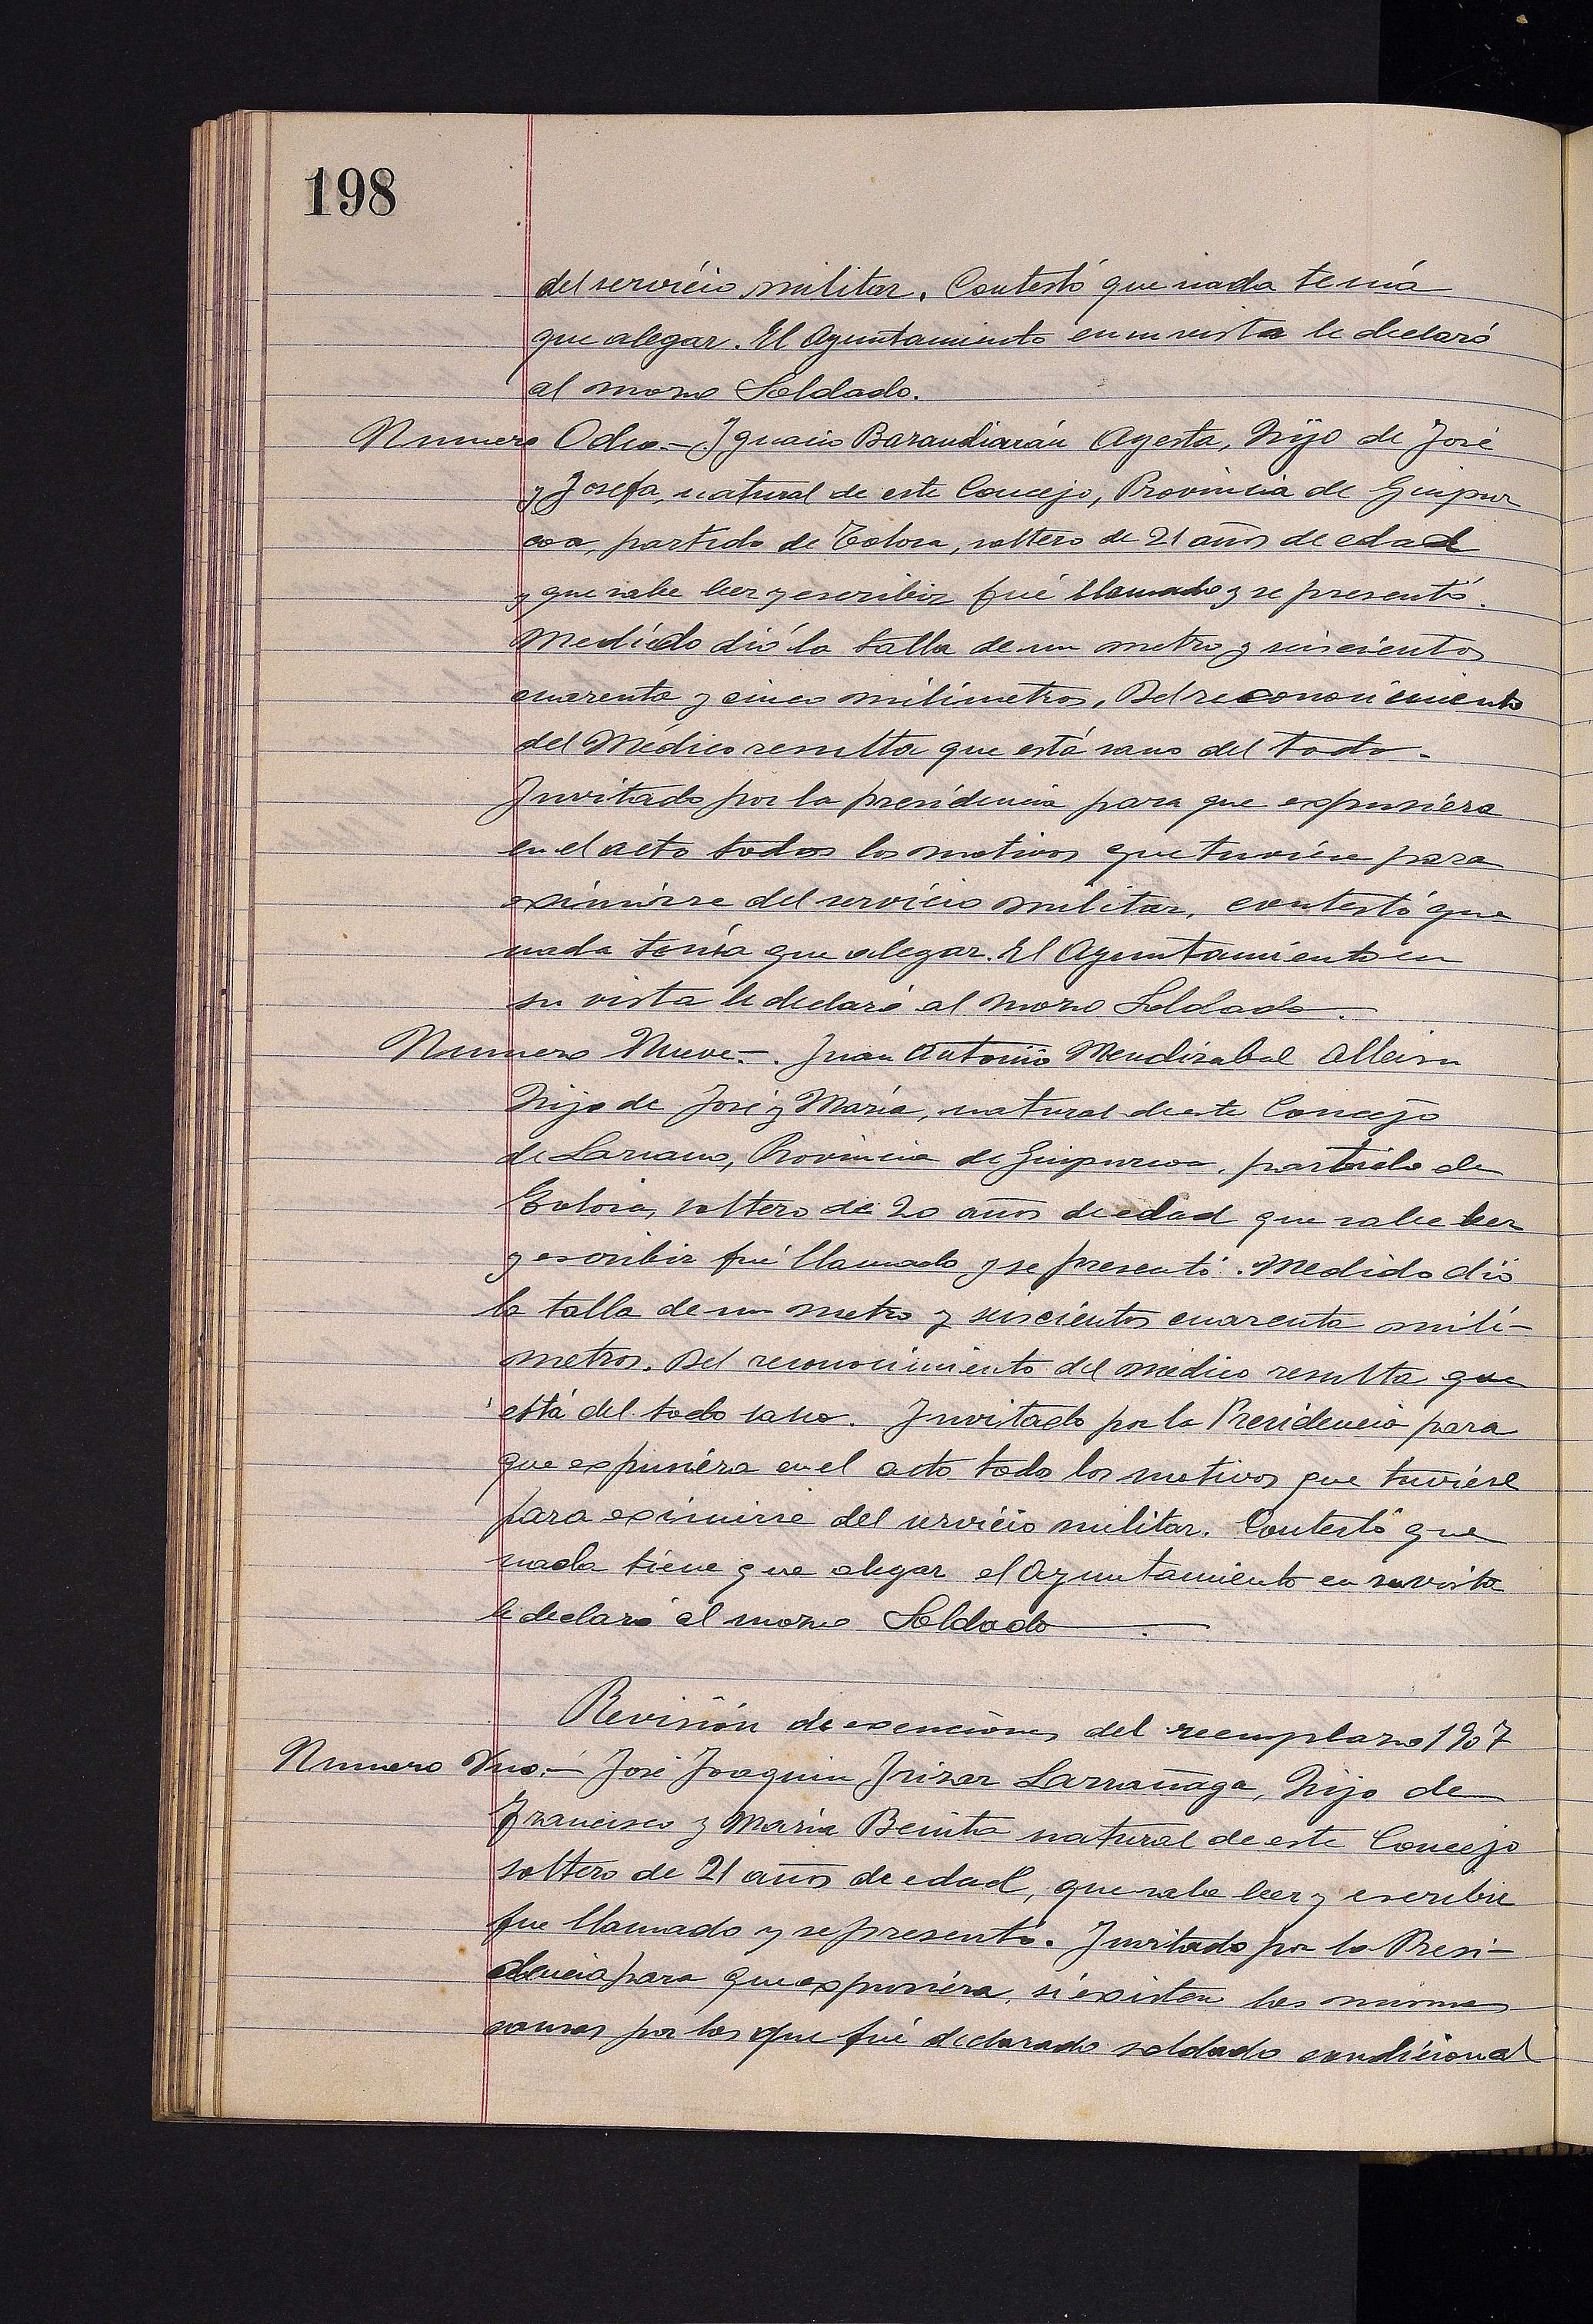 198
del servicio militar. Contestó que nada tenía
que alegar. El Ayuntamiento en su vista le declaró
al mozo Soldado.
Numero Ocho.- Ignacio Barandiarán Ayesta, Hijo de José
y Josefa, natural de este Concejo, Provincia de Guipuz
coa, partido de Tolosa, soltero de 21 años de edad
y que sabe leer y escribir fué llamado y se presentó.
Medido dió la talla de un metro y seiscientos
cuarenta y cinco milimetros. Del reconocimiento
del Médico resulta que está sano del todo.-
Invitado por la presidencia para que expusiera
en el acto todos los motivos que tuviese para
eximirse del servicio militar, contestó que
nada tenía que alegar. El Ayuntamiento en
su vista le declaró al mozo Soldado.-
Numero Nueve.-. Juan Antonio Mendizabal
Hijo de José y María, natural de este Concejo
de Lazcano, Provincia de Guipuzcoa, partido de
Tolosa, soltero de 20 años de edad que sabe leer
y escribir fué llamado y se presentó. Medido dió
la talla de un metro y seiscientos cuarenta mili-
metros. Del reconocimiento del médico resulta que
está del todo sano. Invitado por la Presidencia para
que expusiéra en el acto todo los motivos que tuviese
para eximirse del servicio militar. Contestó que
nada tiene que alegar el Ayuntamiento en su vista
le declaró al mozo Soldado.
Revisión de exenciones del reemplazo 1907
Numero Uno.- José Joaquin Irizar Larrañaga, Hijo de
Francisco y María Benita natural de este Concejo
soltero de 21 años de edad, que sabe leer y escribir
fue llamado y se presentó. Invitado por la Presi-
dencia para que expusiéra, si existen las mismas
causas por las que fué declarado soldado condicional